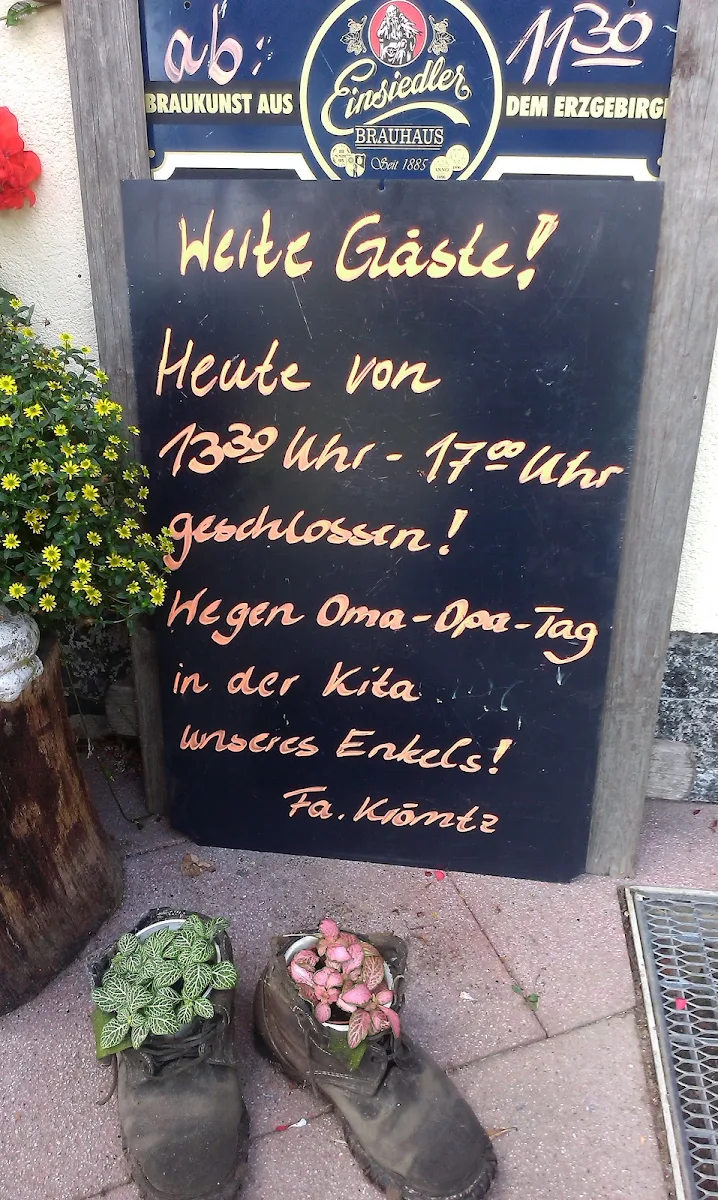 ab: 11 30
Einsiedler
BRAUKUNST AUS DEM ERZGEBIRGE
BRAUHAUS
Seit 1885
Werte Gäste!
Heute von
13 30 Uhr - 17 00 Uhr
geschlossen!
Wegen Oma-Opa-Tag
in der Kita
unseres Enkels!